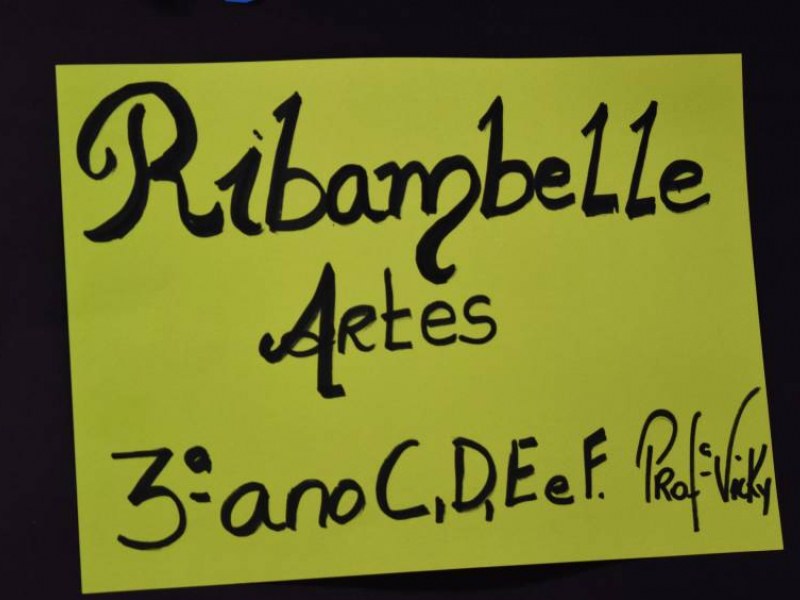 Ribambelle
Artes
3º ano C, D, E e F. Profª Vicky